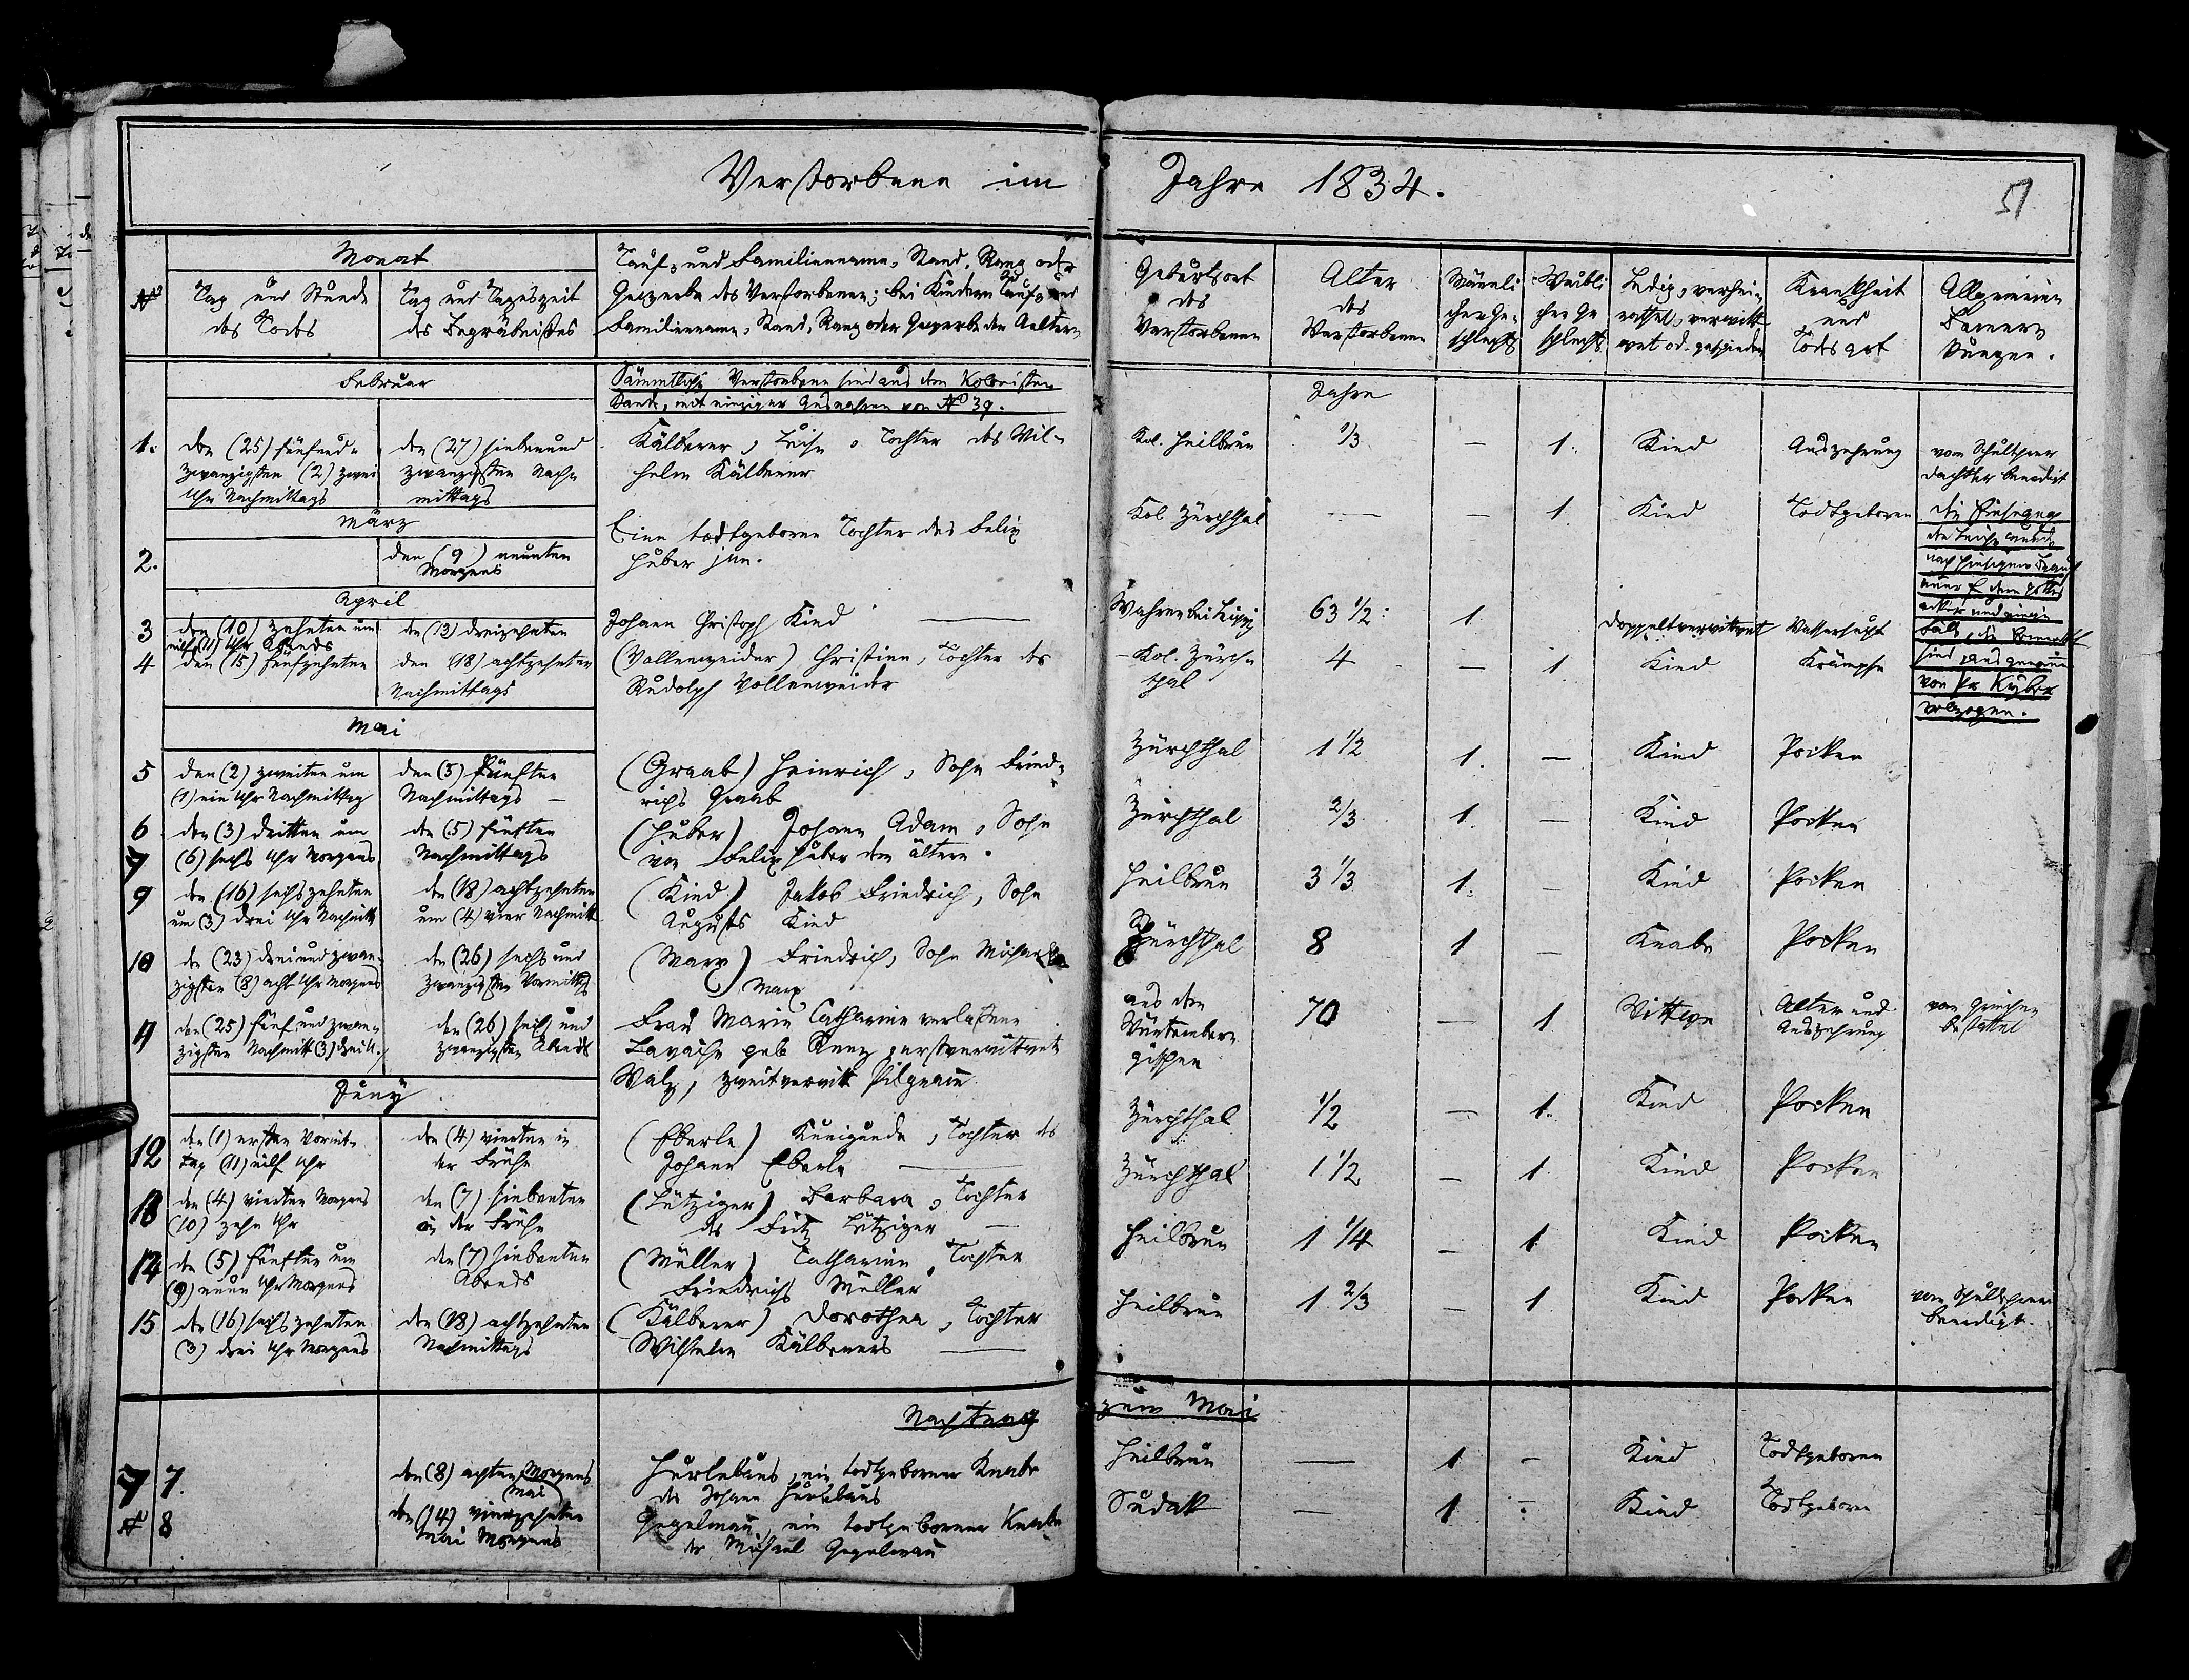 Verstorbene im Jahre 1834.
51
No
Monat
Tag und Stunde
des Todes
Tag und Tageszeit
des Begräbnißes
Tauf- und Familienname, Stand, Rang oder
Gewerbe des Verstorbenen; bei Kindern Tauf- und
Familienname, Stand, Rang oder Gewerbe der Aeltern
Geburtsort
des
Verstorbenen
Alter
des
Verstorbenen
Männli
chen Ge-
schlechts
Weibli
chen Ge
schlechts
Ledig, verhei-
rathet, verwitt
wet od. geschieden
Krankheit
und
Todesart
Allgemeine
Bemerk
Februar
Sämmtliche Verstorbene sind aus dem Kolonisten
Stande, mit einziger Ausnahme von No 39.
Jahre
1.
den (25) fünfund-
zwanzigsten (2) zwei
Uhr Nachmittags
den (27) siebenund
zwanzigsten Nach-
mittags
Kälberer, Luise, Tochter des Wil-
helm Kälberer
Kol. Heilbrun
1/3
—
1.
Kind
Auszehrung
vom Schullehrer
beerdigt
März
2.
den (9) neunten
Morgens
Eine todtgeborene Tochter des Felix
Huber jun.
Kol Zürchthal
—
—
1.
Kind
Todtgeboren
die Einsegnung
der Leiche wurde
nach hiesigem
dem Gottes
acker und einige
Fälle, die bemerkt
sind, ausgenommen
von Pr Kyber
vollzogen.
April
3
den (10) zehnten um
eilf (11) Uhr Abends
den (13) dreizehnten
Johann Christoph Kind —
Wahren bei Leipzig
63 1/2
1.
doppelt verwitwet
Wassersucht
4
den (15) fünfzehnten
den (18) achtzehnten
Nachmittags
(Vollenweider) Christine, Tochter des
Rudolph Vollenweider
Kol. Zürch-
thal
4
—
1
Kind
Krämpfe
Mai
5
den (2) zweiten um
(1) ein Uhr Nachmittag
den (5) fünften
Nachmittags —
(Graab) Heinrich, Sohn Fried-
richs Graab
Zürchthal
1 1/2
1.
—
Kind
Pocken
6
7
den (3) dritten um
(6) sechs Uhr Morgens
den (5) fünften
Nachmittags
(Huber) Johann Adam, Sohn
von Felix Huber dem ältern.
Zürchthal
2/3
1.
—
Kind
Pocken
9
den (16) sechszehnten
um (3) drei Uhr Nachmitt
den (18) achtzehnten
um (4) vier Nachmitt
(Kind) Jakob Friedrich, Sohn
Augusts Kind
Heilbrun
3 1/3
1.
—
Kind
Pocken
10
den (23) dreiundzwan-
zigsten (8) acht Uhr Morgens
den (26) sechs und
zwanzigsten Vormittags
(Marx) Friedrich, Sohn Michaels
Marx
Zürchthal
8
1
—
Knabe
Pocken
11
den (25) fünf und zwan-
zigsten Nachmitt (3) drei U.
den (26) sechs und
zwanzigsten Abends
Frau Marie Catharine verlaßene
Lavache geb Renz, erstverwittwete
Walz, zweitverwitt Pilgram
aus dem
Würtember-
gischen
70
—
1
Wittwe
Alter und
Auszehrung
bestattet
Juny
12
den (1) ersten Vormit-
tag (11) eilf Uhr
den (4) vierten in
der Frühe
(Eberle) Kunigunde, Tochter des
Johann Eberle —
Zürchthal
1/2
—
1.
Kind
Pocken
13
den (4) vierten Morgens
(10) zehn Uhr
den (7) siebenten
in der Frühe
(Lütziger) Barbara, Tochter
des Fritz Lütziger —
Zürchthal
1 1/2
—
1.
Kind
Pocken
14
den (5) fünften um
(9) neun Uhr Morgens
den (7) siebenten
Abends
(Müller) Catharine, Tochter
Friedrichs Müller
Heilbrun
1 1/4
—
1
Kind
Pocken
15
den (16) sechszehnten
(3) drei Uhr Morgens
den (18) achtzehnten
Nachmittags
(Kälberer) Dorothea, Tochter
Wilhelm Kälberers —
Heilbrun
1 2/3
—
1.
Kind
Pocken
vom Schullehrer
beerdigt.
Nachtrag zum Mai
7 7.
den (8) achten Morgens
Mai
Hurlebaus, ein todtgeborener Knabe
des Johann Hurlebaus
Heilbrun
—
1
—
Kind
Todtgeboren
No 8
den (14) vierzehnten
Mai Morgens
Gegelmann, ein todtgeborener Knabe
des Michael Gegelmann
Sudak
—
1.
—
Kind
Todtgeboren